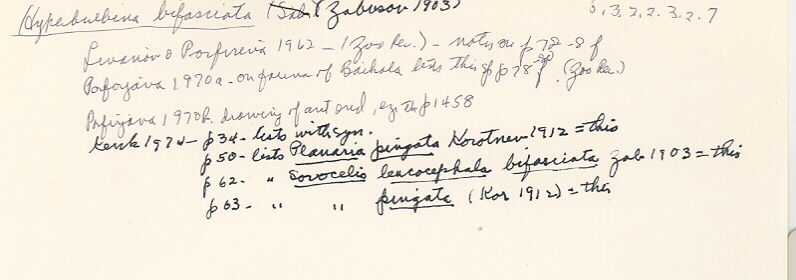 Hypebulbina bifasciata (Sab) (Zabusov 1903) 6, 3.2.2.3.2.7
Livanov & Porfireva 1962 - (Zoo Rec.) - notes on p 78-8 f
1970a - on fauna of Baikala lists this sp p 78 f (Zoo Rec.)
1970b. drawing of ant end, p 1458
Kenk 1974 - p 34 - lists with syn.
p 50 - lists Planaria pingata Korotnev 1912 = this
p 62. " Sorocelis leucocephala bifasciata Zab 1903 = this
p 63 - " " pingata (Kor 1912) = this